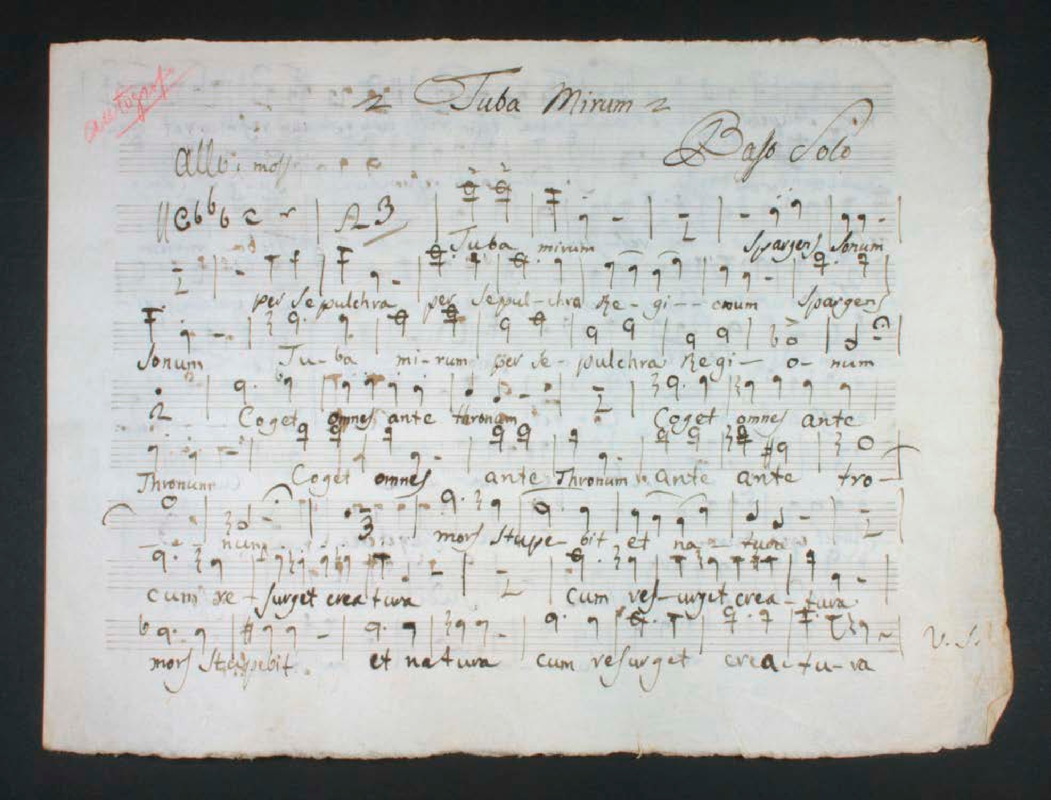 Tuba Mirum
Baso Solo
allo: moss
3
Tuba mirum Spargens Sonum
per Sepulchra per Sepul-chra Re-gi--onum Spargens
Sonum Tu-ba mi-rum per Se-pulchra Regi-o-num
2 Coget omnes ante thronum Coget omnes ante
Thronum Coget omnes ante Thronum ante ante tro-
3
num mors stupe-bit et na-tura
cum re-surget creatura cum res-urget crea-tura
mors Stupebit et natura cum resurget crea-tu-ra
V. S.